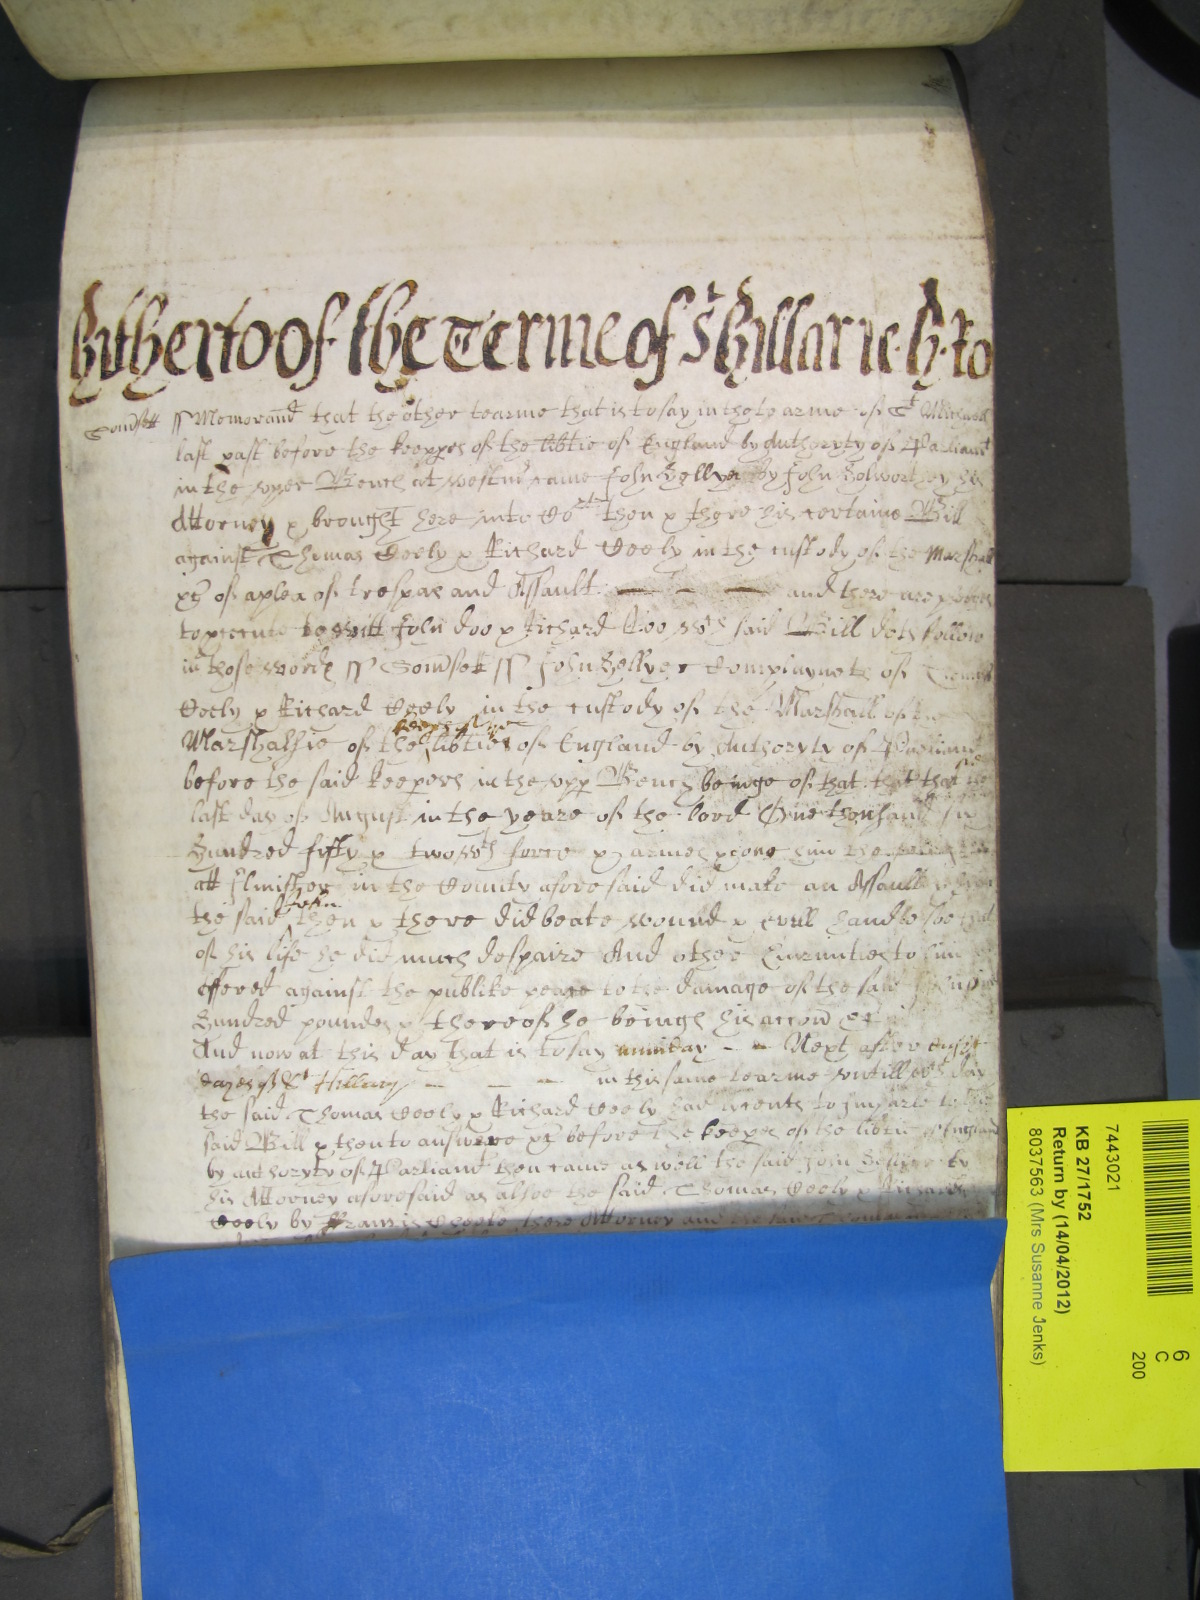 Hitherto of the Terme of St Hillarie H. Ro
Somsett ss Memorand that the other tearme that is to say in the tearme of St Michaell
last past before the keepers of the libtie of England by Authoryty of Parliamt
in the upper Bench at Westmr came John Hellyer by John Holworthy his
Attorney & brought here into then & there his certaine Bill
against Thomas Veely & Richard Veely in the custody of the Marshall
&c of a plea of trespas and Assault — — — and there are pledges
to prosecute to witt John doo & Richard Roo wch said Bill doth follow
in these words ss Somsett ss John Hellyer Complayneth of Thomas
Veely & Richard Veely in the custody of the Marshall of the
keepers of the
Marshalsie of the libtie of England by Authoryty of Parliamt
before the said keepers in the upp Bench beinge of that that they the
last day of August in the yeare of the lord One thousand six
hundred fifty & two wth force & armes upone him the
att Ilmister in the County aforesaid did make an Assault
John
the said then & there did beate wound & evill handle soe that
of his life he did much despaire And other Enormities to him
offered against the publike peace to the damage of the said John
hundred poundes & thereof he bringeth his accon &c
And now at this day that is to say munday – – Next after eight
dayes of St Hillary – – – in this same tearme untill wch day
the said Thomas Veely & Richard Veely had licence to Imparle to the
said Bill & then to answere &c before the keepers of the libtie of England
by authoryty of Parliamt then came as well the said John Hellyer by
his Attorney aforesaid as alsoe the said Thomas Veely & Richard
Veely by Francis there Attorney and the said Thomas
7443021
KB 27/1752
Return by (14/04/2012)
8037563 (Mrs Susanne Jenks)
6
C
200